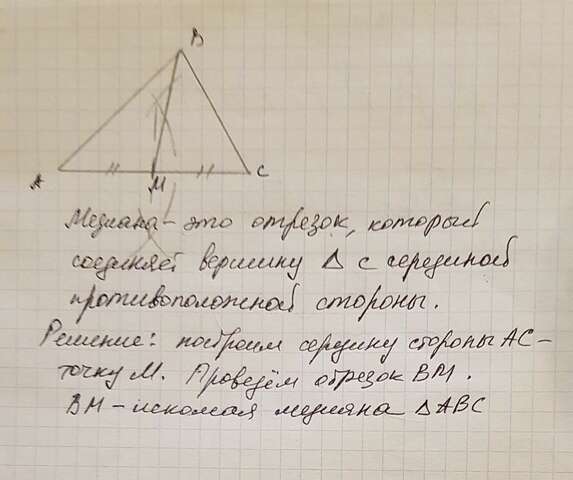 B
A
M
C
Медиана - это отрезок, который
соединяет вершину Δ с серединой
противоположной стороны.
Решение: построим середину стороны AC -
точку M. Проведём отрезок BM.
BM - искомая медиана Δ ABC